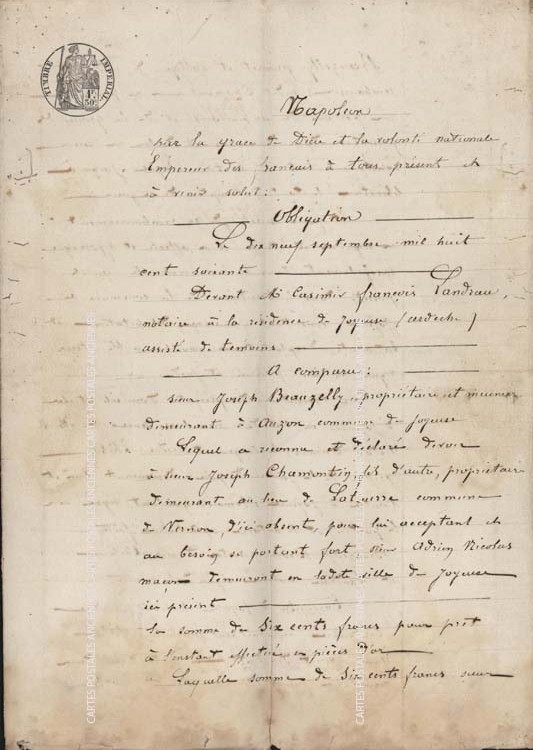 TIMBRE IMPERIAL
1F. 50C.
Napoléon
par la grace de Dieu et la volonté nationale
Empereur des français à tous présent et
à venir salut :
Obligation
Le dix neuf septembre mil huit
cent soixante
Devant Me Casimir françois Landrau,
notaire à la residence de Joyeuse (ardeche)
assisté de temoins
A comparu :
sieur Joseph Beauzelly, propriétaire et meunier
demeurant à Auzon commune de Joyeuse
Lequel a reconnu et déclaré devoir
à sieur Joseph Chamontin, propriétaire
demeurant au lieu de commune
de Vernon, d'ici absent, pour lui acceptant et
au besoin se portant fort, sieur Adrien Nicolas
maçon demeurant en ladite ville de Joyeuse
ici présent
La somme de Six cents francs pour prêt
à l'instant effectué en pièces d'or
Laquelle somme de Six cents francs sieur
CARTES POSTALES ANCIENNES